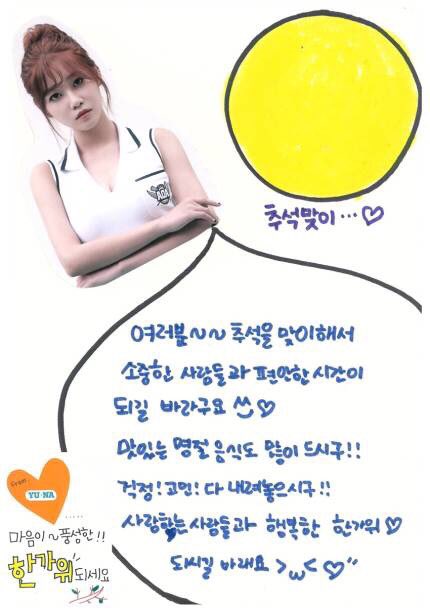 추석맞이… ♡
여러분~~ 추석을 맞이해서
소중한 사람들과 편안한 시간이
되길 바라구요 ^^ ♡
맛있는 명절 음식도 많이 드시구!!
걱정! 고민! 다 내려놓으시구!!
사랑하는 사람들과 행복한 한가위 ♡
되시길 바래요 >ω< ♡"
From.
YU·NA
마음이~풍성한!!
한가위 되세요